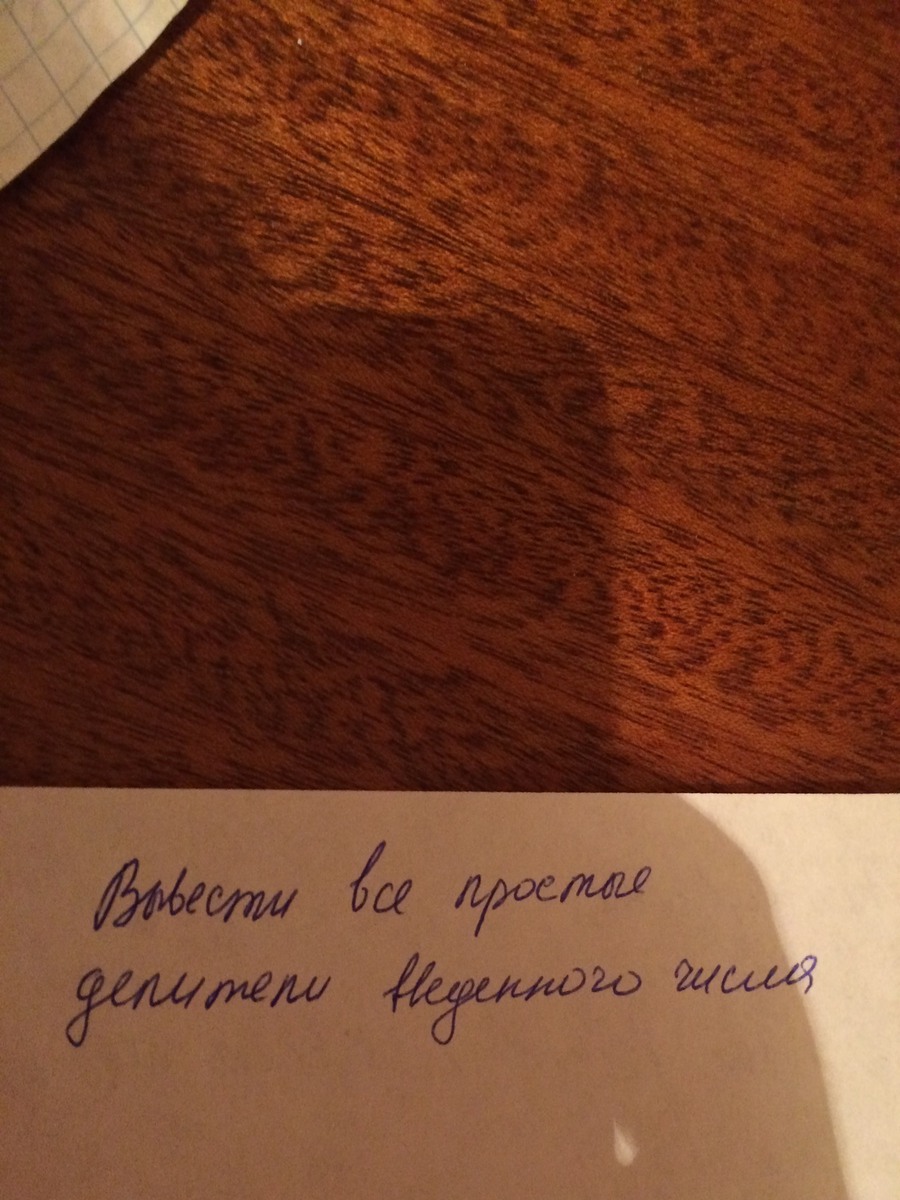 Вывести все простые
делители введенного числа